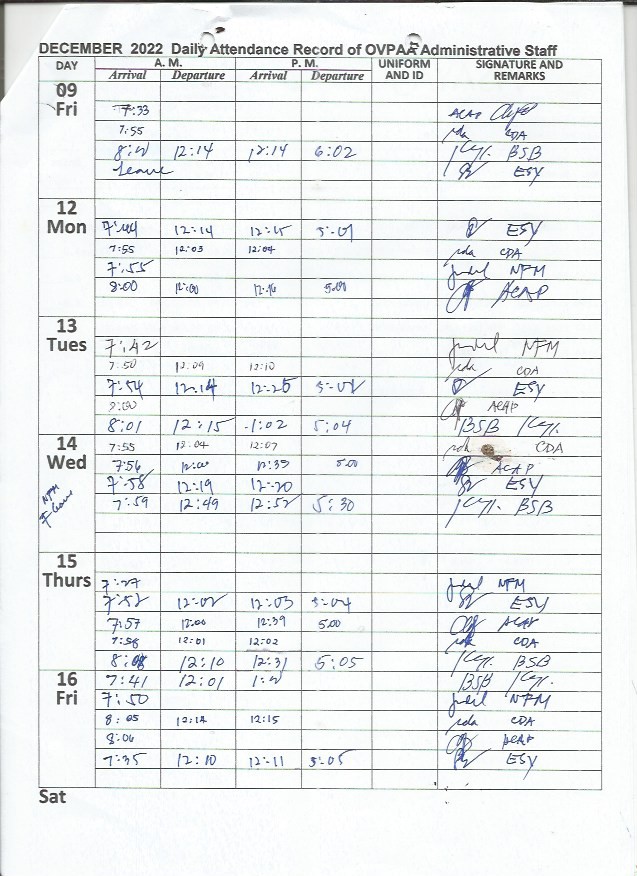 DECEMBER 2022 Daily Attendance Record of OVPAA Administrative Staff
DAY A. M. P. M. UNIFORM AND ID SIGNATURE AND REMARKS
Arrival Departure Arrival Departure
09 Fri
7:33 ACAP
7:55 CDA
12:14 12:14 6:02 BSB
Leave ESY
12 Mon
7:44 12:14 12:15 5:01 ESY
7:55 12:03 12:04 CDA
7:55 NFM
8:00 12:00 5:00 ACAP
13 Tues
7:42 NFM
7:50 12:09 12:10 CDA
7:54 12:14 12:25 ESY
ACAP
8:01 12:15 1:02 5:04 BSB
14 Wed
7:55 12:04 12:07 CDA
7:56 12:35 5:00 ACAP
7:58 12:19 12:20 ESY
7:59 12:49 12:52 5:30 BSB
NFM Leave
15 Thurs
7:27 NFM
7:52 12:02 12:03 5:04 ESY
7:57 12:00 12:39 5:00 ACAP
7:58 12:01 12:02 CDA
12:10 12:31 5:05 BSB
16 Fri
7:41 12:01 BSB
7:50 NFM
8:05 12:14 12:15 CDA
8:06 ACAP
7:35 12:10 12:11 5:05 ESY
Sat